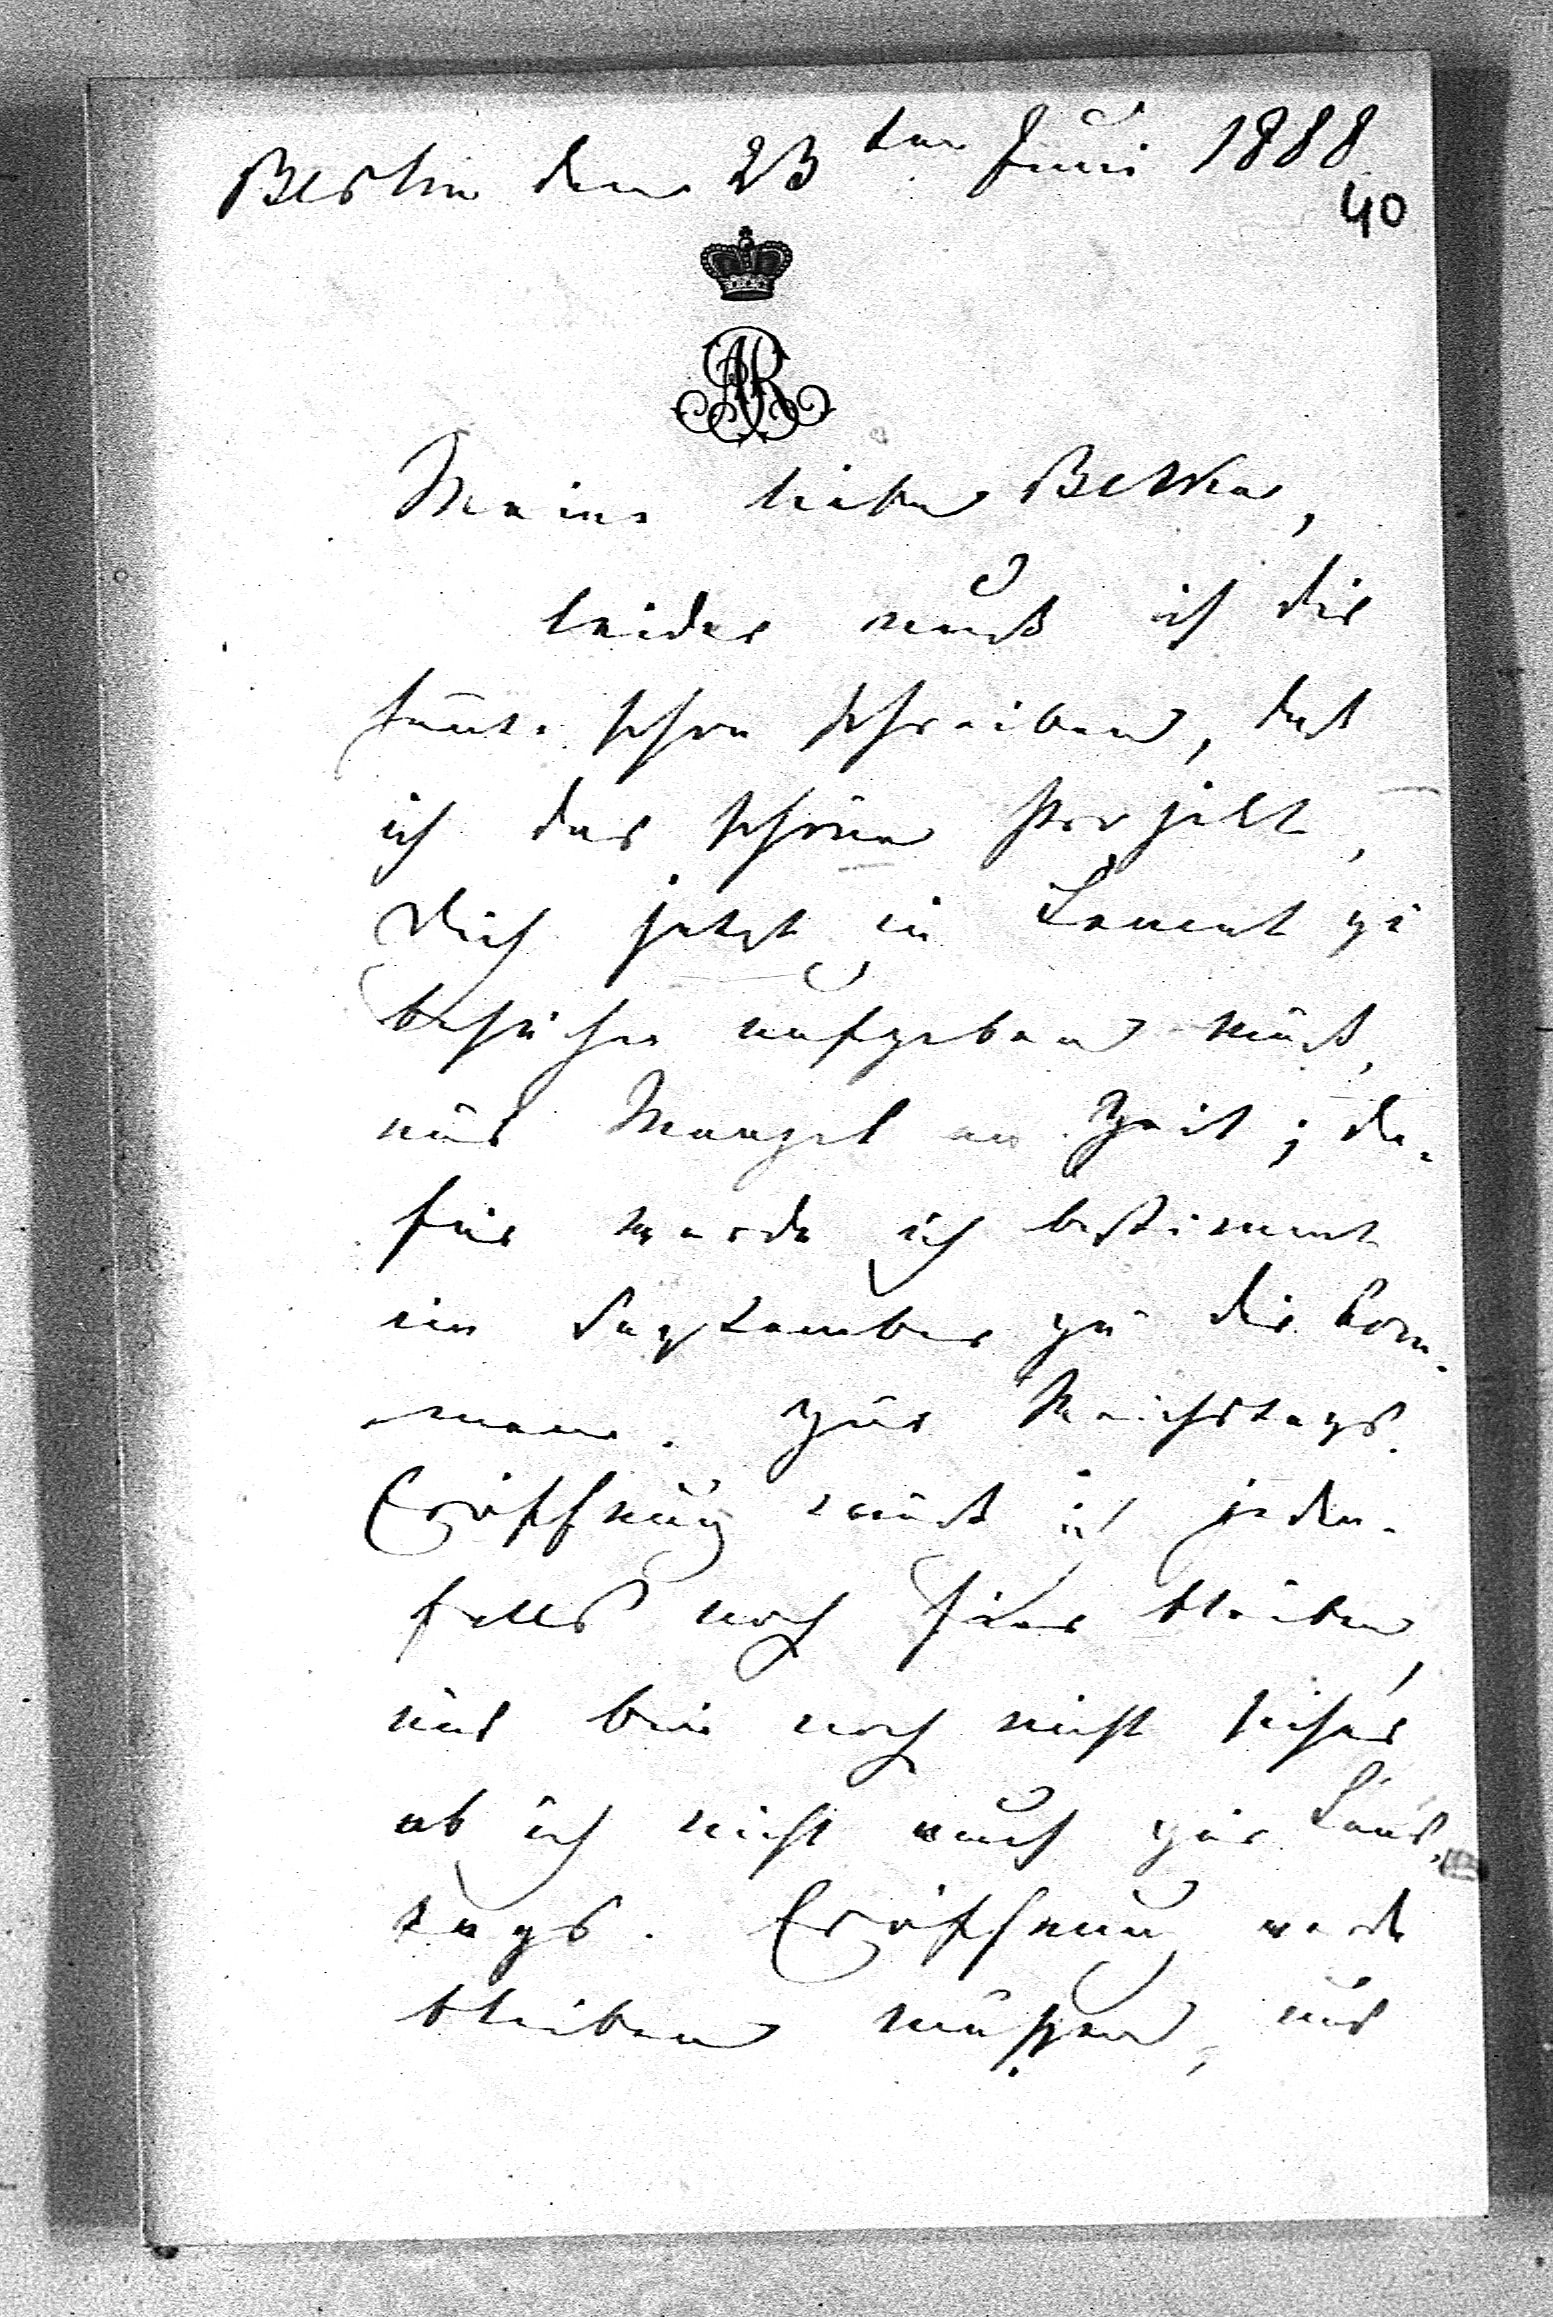 Berlin den 23ten Juni 1888
40
AR
Meine liebe Betka,
leider muß ich dir
heute schon schreiben, daß
ich das schöne Projekt,
Dich jetzt in zu
besuchen aufgeben muß,
aus Mangel an Zeit; da-
für werde ich bestimmt
im September zu dir kom-
men. Zur Reichstags-
Eröffnung muß ich jeden-
falls noch hier bleiben,
und bin noch nicht sicher
ob ich nicht auch zur Land-
tags. Eröffnung werde
bleiben müssen, und